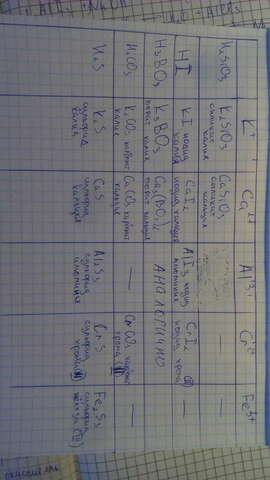 K⁺ Ca²⁺ Al³⁺ Cr²⁺ Fe³⁺
H₂SiO₃ K₂SiO₃ силикат калия CaSiO₃ силикат кальция — —
HI KI иодид калия CaI₂ иодид кальция AlI₃ иодид алюминия CrI₂ иодид хрома (II) —
H₃BO₃ K₃BO₃ борат калия борат кальция АНАЛОГИЧНО
H₂CO₃ K₂CO₃ карбонат калия CaCO₃ карбонат кальция — CrCO₃ карбонат хрома (II) —
H₂S K₂S сульфид калия CaS сульфид кальция Al₂S₃ сульфид алюминия CrS сульфид хрома (II) Fe₂S₃ сульфид железа (III)